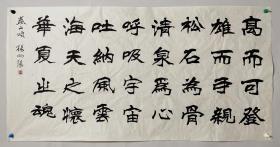 高而可登
雄而可親
松石為骨
清泉為心
呼吸宇宙
吐納風雲
海天之懷
華夏之魂
泰山頌